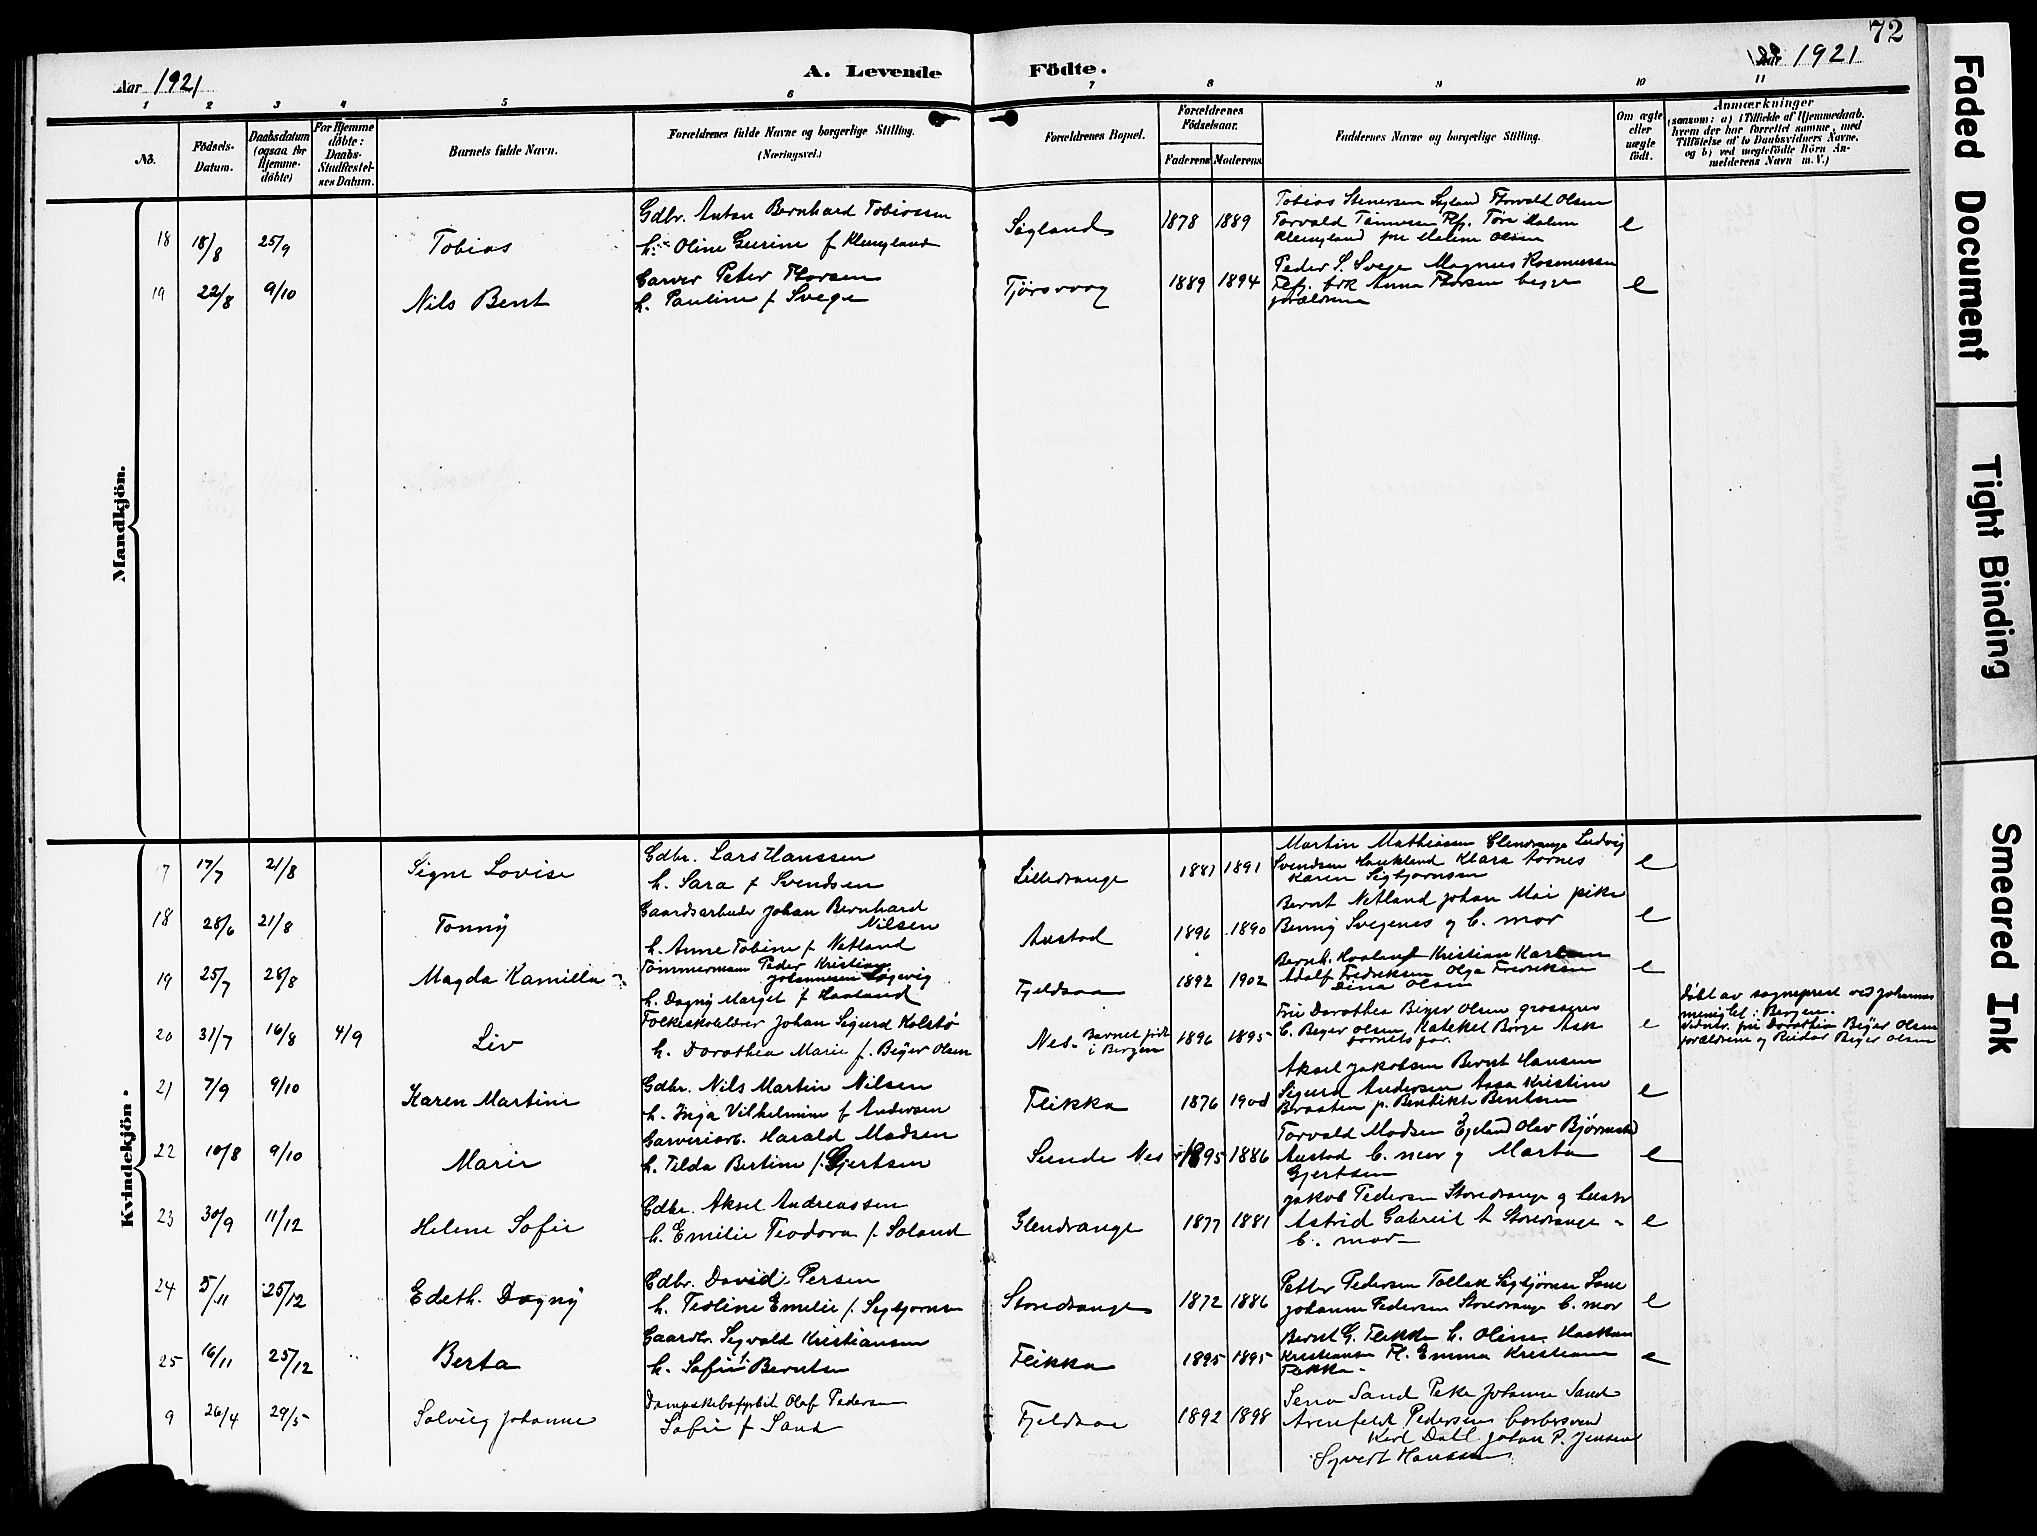 72
Aar 1921
A. Levende
Födte.
1921
1 2 3 4 5 6 7 8 9 10 11
No.
Födsels-Datum.
Daabsdatum (ogsaa for Hjemme-döbte)
For Hjemme döbte: Daabs-Stadfæstel-ses Datum.
Barnets fulde Navn.
Forældrenes fulde Navne og borgerlige Stilling. (Næringsvei.)
Forældrenes Bopæl.
Forældrenes Födselsaar.
Faderens Moderens
Faddernes Navne og borgerlige Stilling.
Om ægte eller uægte födt.
Anmærkninger
(saasom: a) i Tilfælde af Hjemmedaab, hvem der har forrettet samme, med Tilföielse af to Daabsvidners Navne. og b) ved uægtefödte Börn An-melderens Navn m. V.)
Mandkjön.
18 18/8 25/9 Tobias
Gdbr. Anton Bernhard Tobiassen
h. Oline Gurine f Klungland
Søgland 1878 1889
Tobias Stenersen Søgland Thorvald Olsen
Torvald Tønnesen Tore Malene
Klungland fru Malene Olsen
e
19 22/8 9/10 Nils Bent
Garver Peter Thorsen
h. Pauline f Svege
Tjørsvaag 1889 1894
Peder S. Svege Magnus Rasmussen
Anna Thorsen begge
forældrene
e
Kvindekjön.
17 17/7 21/8 Signe Lovise
Gdbr. Lars Hanssen
h. Sara f Svendsen
Lilledrange 1881 1891
Martin Mathiassen Glendrange Ludvig
Svendsen Haukland Klara Aarnes
Karen Sigbjørnsen
e
18 28/6 21/8 Tonny
Gaardsarbeider Johan Bernhard
Nilsen
h. Anne Tobine f Netland
Austad 1896 1890
Bernt Netland Johan Moi pike
Benny Svegenes og b. mor
e
19 25/7 28/8 Magda Kamilla
Tømmermann Peder Kristian
Johannesen Løgevig
h. Dagny Marget f Haaland
Fjeldsaa 1892 1902
Bernh. Haaland Kristian Karlsen
Adolf Fredriksen Olga Fredriksen
Dina Olsen
e
20 31/7 16/8 4/9 Liv
Folkeskolelærer Johan Sigurd Kolstø
h. Dorothea Marie f. Beyer Olsen
Nes. Barnet født
i Bergen
1896 1895
Fru Dorothea Beyer Olsen grosserer
C. Beyer Olsen, Kateket Børge Ask
barnets far.
e
Døbt av sogneprest ved Johannes
menighet i Bergen.
Vidner. fru Dorothea Beyer Olsen
forældrene og Reidar Beyer Olsen
21 7/9 9/10 Karen Martine
Gdbr. Nils Martin Nilsen
h. Inga Vilhelmine f Andersen
Flikka 1876 1900
Aksel Jakobsen Bernt Hansen
Sigurd Andersen Aasa Kristine
Braaten p. Bendikte Bentsen
e
22 10/8 9/10 Marie
Garveriarb. Harald Madsen
h. Tilda Bertine f. Gjertsen
Sunde Nes 1895 1886
Torvald Madsen Egeland Olav Bjørnestad
Austad b. mor og Marta
Gjertsen
e
23 30/9 11/12 Helene Sofie
Gdbr. Aksel Andreassen
h. Emilie Teodora f. Soland
Glendrange 1877 1881
Jakob Pedersen Storedrange og hustr
Astrid Gabriel A Storedrange
b. mor
e
24 5/11 25/12 Edeth. Dagny
Gdbr. David Persen
h. Teoline Emilie f. Sigbjørnsen
Storedrange 1872 1886
Petter Pedersen Tollak Sigbjørnsen
Johanne Pedersen Storedrange b. mor
e
25 16/11 25/12 Berta
Gaardbr. Sigvald Kristiansen
h. Sofie f Berntsen
Flikka 1895 1895
Bernt G. Flikke h. Oline Haakon
Kristiansen Fl. Emma Kristiansen
Flikka
e
9 26/4 29/5 Solveig Johanne
Dampskibsfyrbøt Olaf Pedersen
Sofie f Sand
Fjeldsaa 1892 1898
Sena Sand Peke Johanne Sand
Arenfeldt Pedersen barbersvend
Karl Dahl Johan P. Jensen
Syvert Hanssen
Faded Document
Tight Binding
Smeared Ink